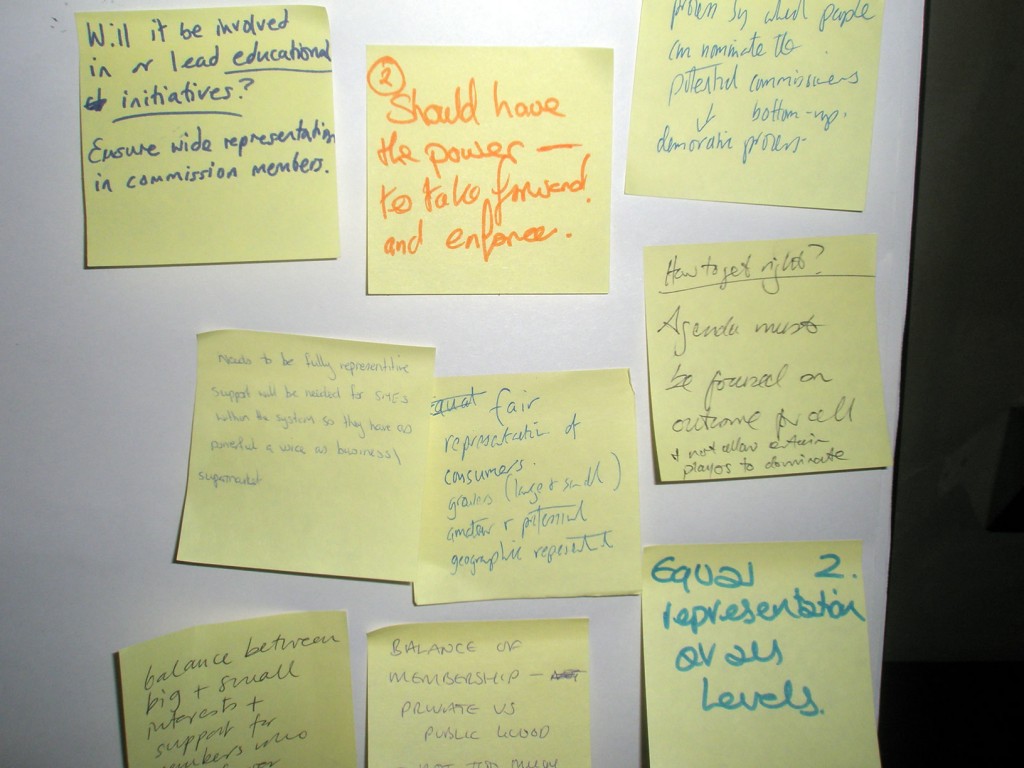 Will it be involved
in or lead educational
initiatives?
Ensure wide representation
in commission members.
2
Should have
the power —
to take forward
and enforce.
process by which people
can nominate the
potential commissioners
↓ bottom-up.
democratic process
How to get right?
Agenda must
be focused on
outcome for all
& not allow certain
players to dominate
Needs to be fully representitive
support will be needed for SMEs
within the system so they have as
powerful a voice as business/
supermarket
equal fair
representation of
consumers.
growers (large & small)
amateur &
geographic represent
Equal 2.
representation
at all
Levels.
balance between
big + small
interests +
support for
members who
BALANCE OF
MEMBERSHIP —
PRIVATE VS
PUBLIC GOOD
- NOT TOO MANY